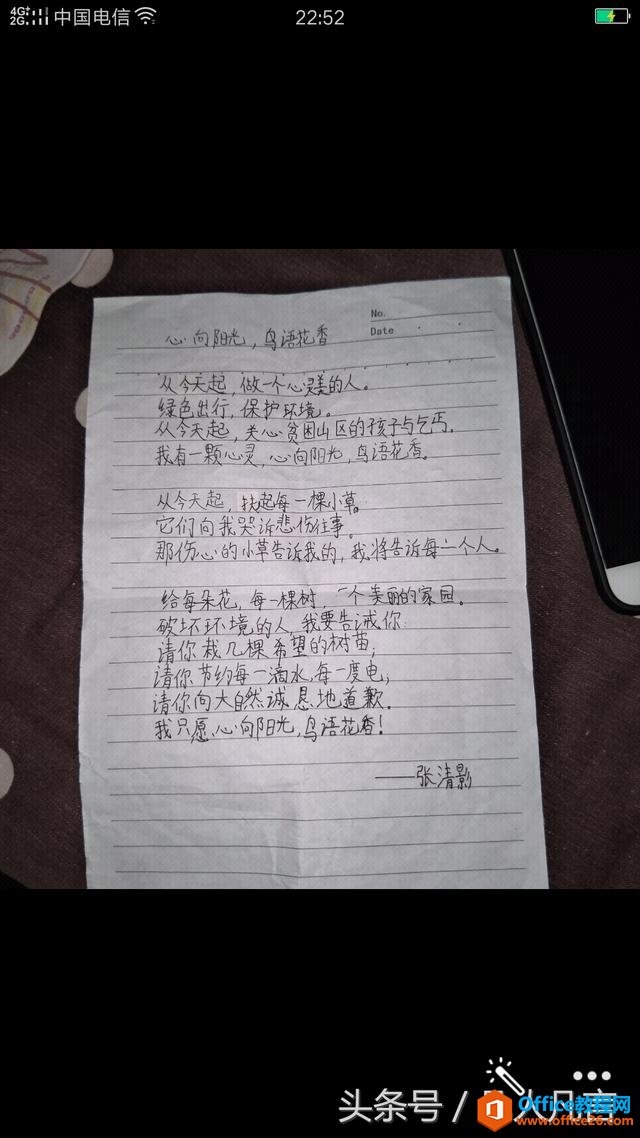 4G+
2G
中国电信
22:52
No.
Date
心向阳光,鸟语花香
从今天起,做一个心灵美的人。
绿色出行,保护环境。
从今天起,关心贫困山区的孩子与乞丐。
我有一颗心灵,心向阳光,鸟语花香。
从今天起,扶起每一棵小草。
它们向我哭诉悲伤往事。
那伤心的小草告诉我的,我将告诉每一个人。
给每朵花,每一棵树,一个美丽的家园。
破坏环境的人,我要告诫你:
请你栽几棵希望的树苗;
请你节约每一滴水,每一度电;
请你向大自然诚恳地道歉.
我只愿,心向阳光,鸟语花香!
——张清影
头条号 /
Office教程网
www.office26.com